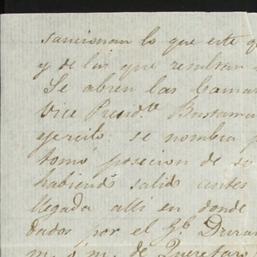 sancionan lo que este
y de las que resultan
Se abren las Camar
Vice Presid.te Bustama
ejercito se nombra
tomó posecion de se
habiendo salido antes
llegada alli en donde
dados por el Gl. Duran
m. s. m. de Queretaro